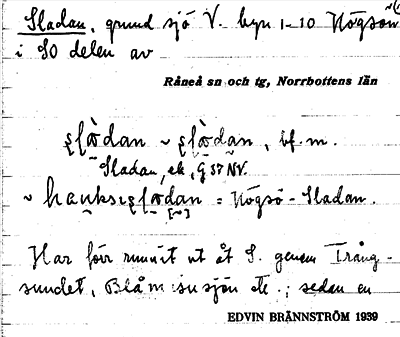 Sladan, grund sjö V. byn 1-10 Högsön
i SO delen av
Råneå sn och tg, Norrbottens län
Sladan, ek, G 37 NV.
= Högsö-Sladan.
Har förr runnit ut åt S. genom Trång-
sundet, Blåmissusjön etc.; sedan en
EDVIN BRÄNNSTRÖM 1939